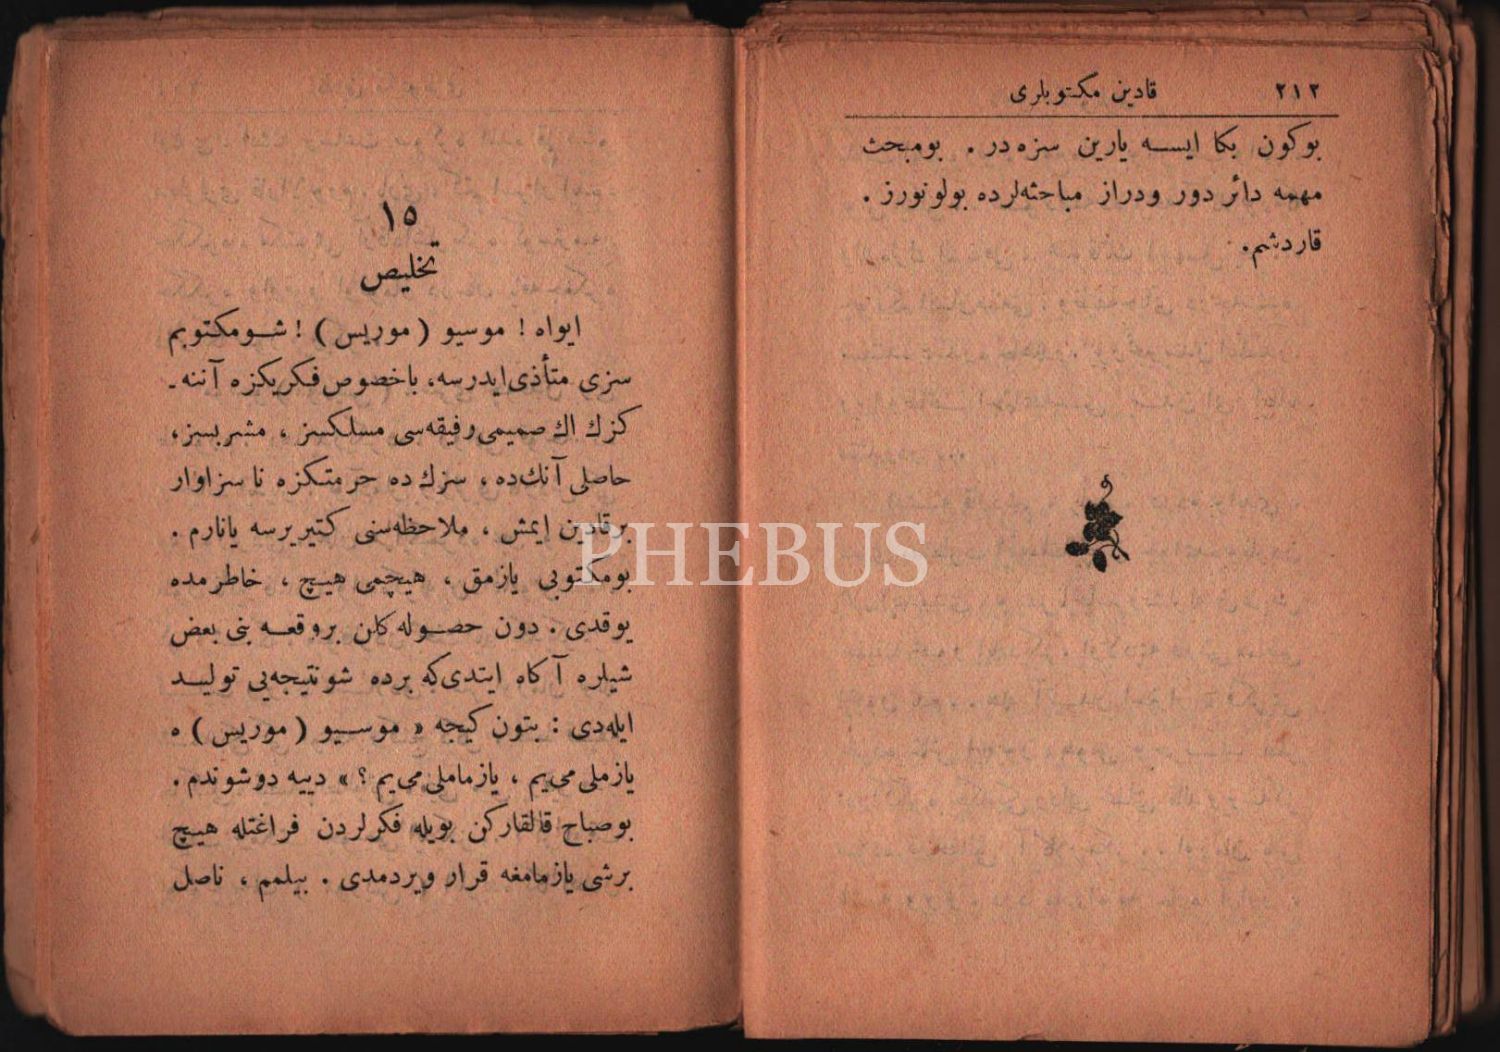 ٢١٢ قادین مكتوبلری
بوكون بكا ایسه یارین سزه در . بومبحث
مهمه دائر دور ودراز مباحثه‌لرده بولونورز .
قاردشم.
١٥
تخلیص
ایواه ! موسیو ( موریس ) ! شو مكتوبم
سزی متأذی ایدرسه، باخصوص فكریكزه آننه‌ـ
كزك اك صمیمی رفیقه‌سی مسلكسز ، مشربسز،
حاصلی آنك‌ده ، سزك ده حرمتكزه ناسزاوار
برقادین ایمش ، ملاحظه‌سنی كتیریرسه یانارم .
بومكتوبی یازمق ، هیچمی هیچ ، خاطرمده
یوقدی . دون حصوله كلن بروقعه بنی بعض
شیلره آكاه ایتدی كه برده شو نتیجه‌یی تولید
ایله‌دی : بتون كیجه « موسیو ( موریس ) ه
یازملی می‌یم ، یازماملی می‌یم ؟ » دییه دوشوندم .
بوصباح قالقاركن بویله فكرلردن فراغتله هیچ
برشی یازمامغه قرار ویردمدی . بیلمم ، ناصل
PHEBUS